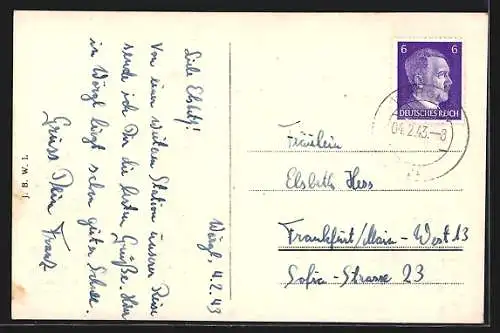 Wörgl, 4.2.43
Liebe Elsbeth!
Von einer weiteren Station unserer Reise
sende ich Dir die besten Grüße. Hier
in Wörgl liegt sehr guter Schnee.
Gruss Dein Franz
J. B. W. I.
6 6
DEUTSCHES REICH
04.2.43.-8
Fräulein
Elsbeth Hess
Frankfurt/Main-West 13
Sofia-Strasse 23